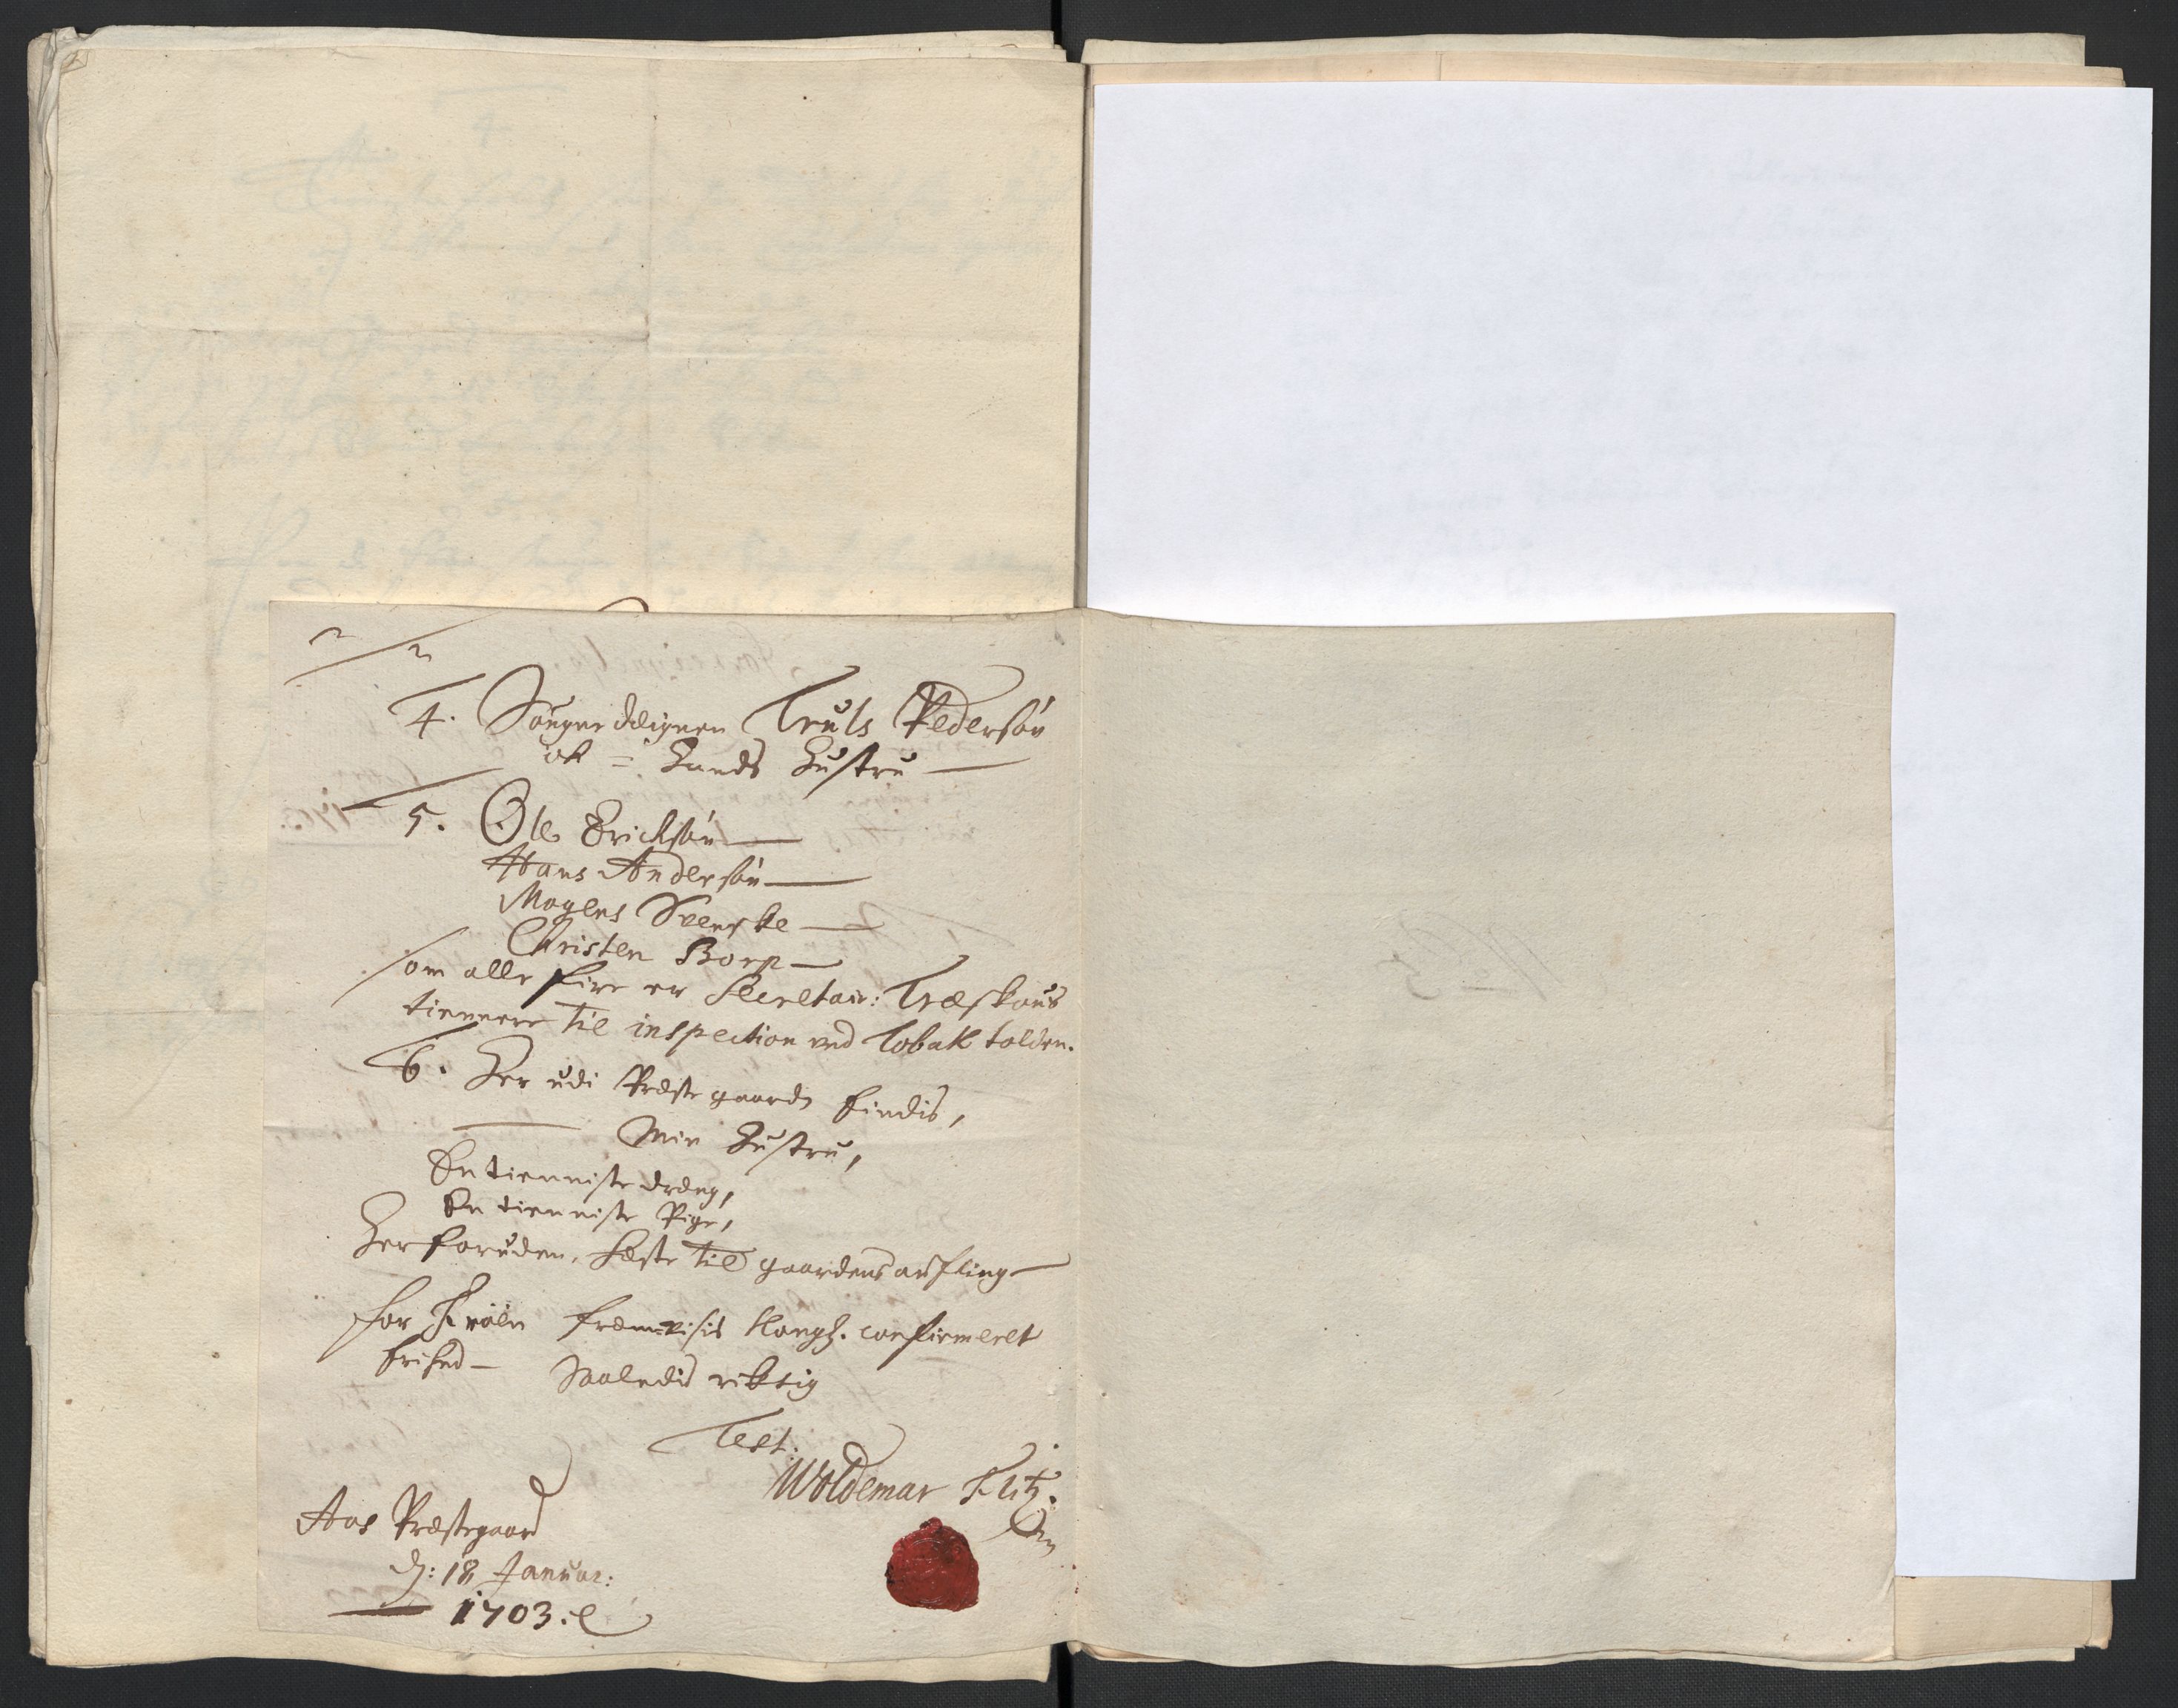 4. Sougnedeignen Truls Pedersøn
ok = Hands Hustru
5. Ole Ericksøn
Hans Andersøn
Mogens Svenske
Christen Borp
som alle fire er Secretair: Træskous
tiennere til inspection ved Tobak tolden.
6. Her udi Præstegaarden findis,
Min Hustru,
En tienniste dreng,
En tienniste Pige,
Herforuden, Heste til gaardens aufling
for fremvisis Kongl. confirmeret
frihed - Saaledis riktig
Test.
Woldemar
Aas Præstegaard
d: 18 Januar:
1703.